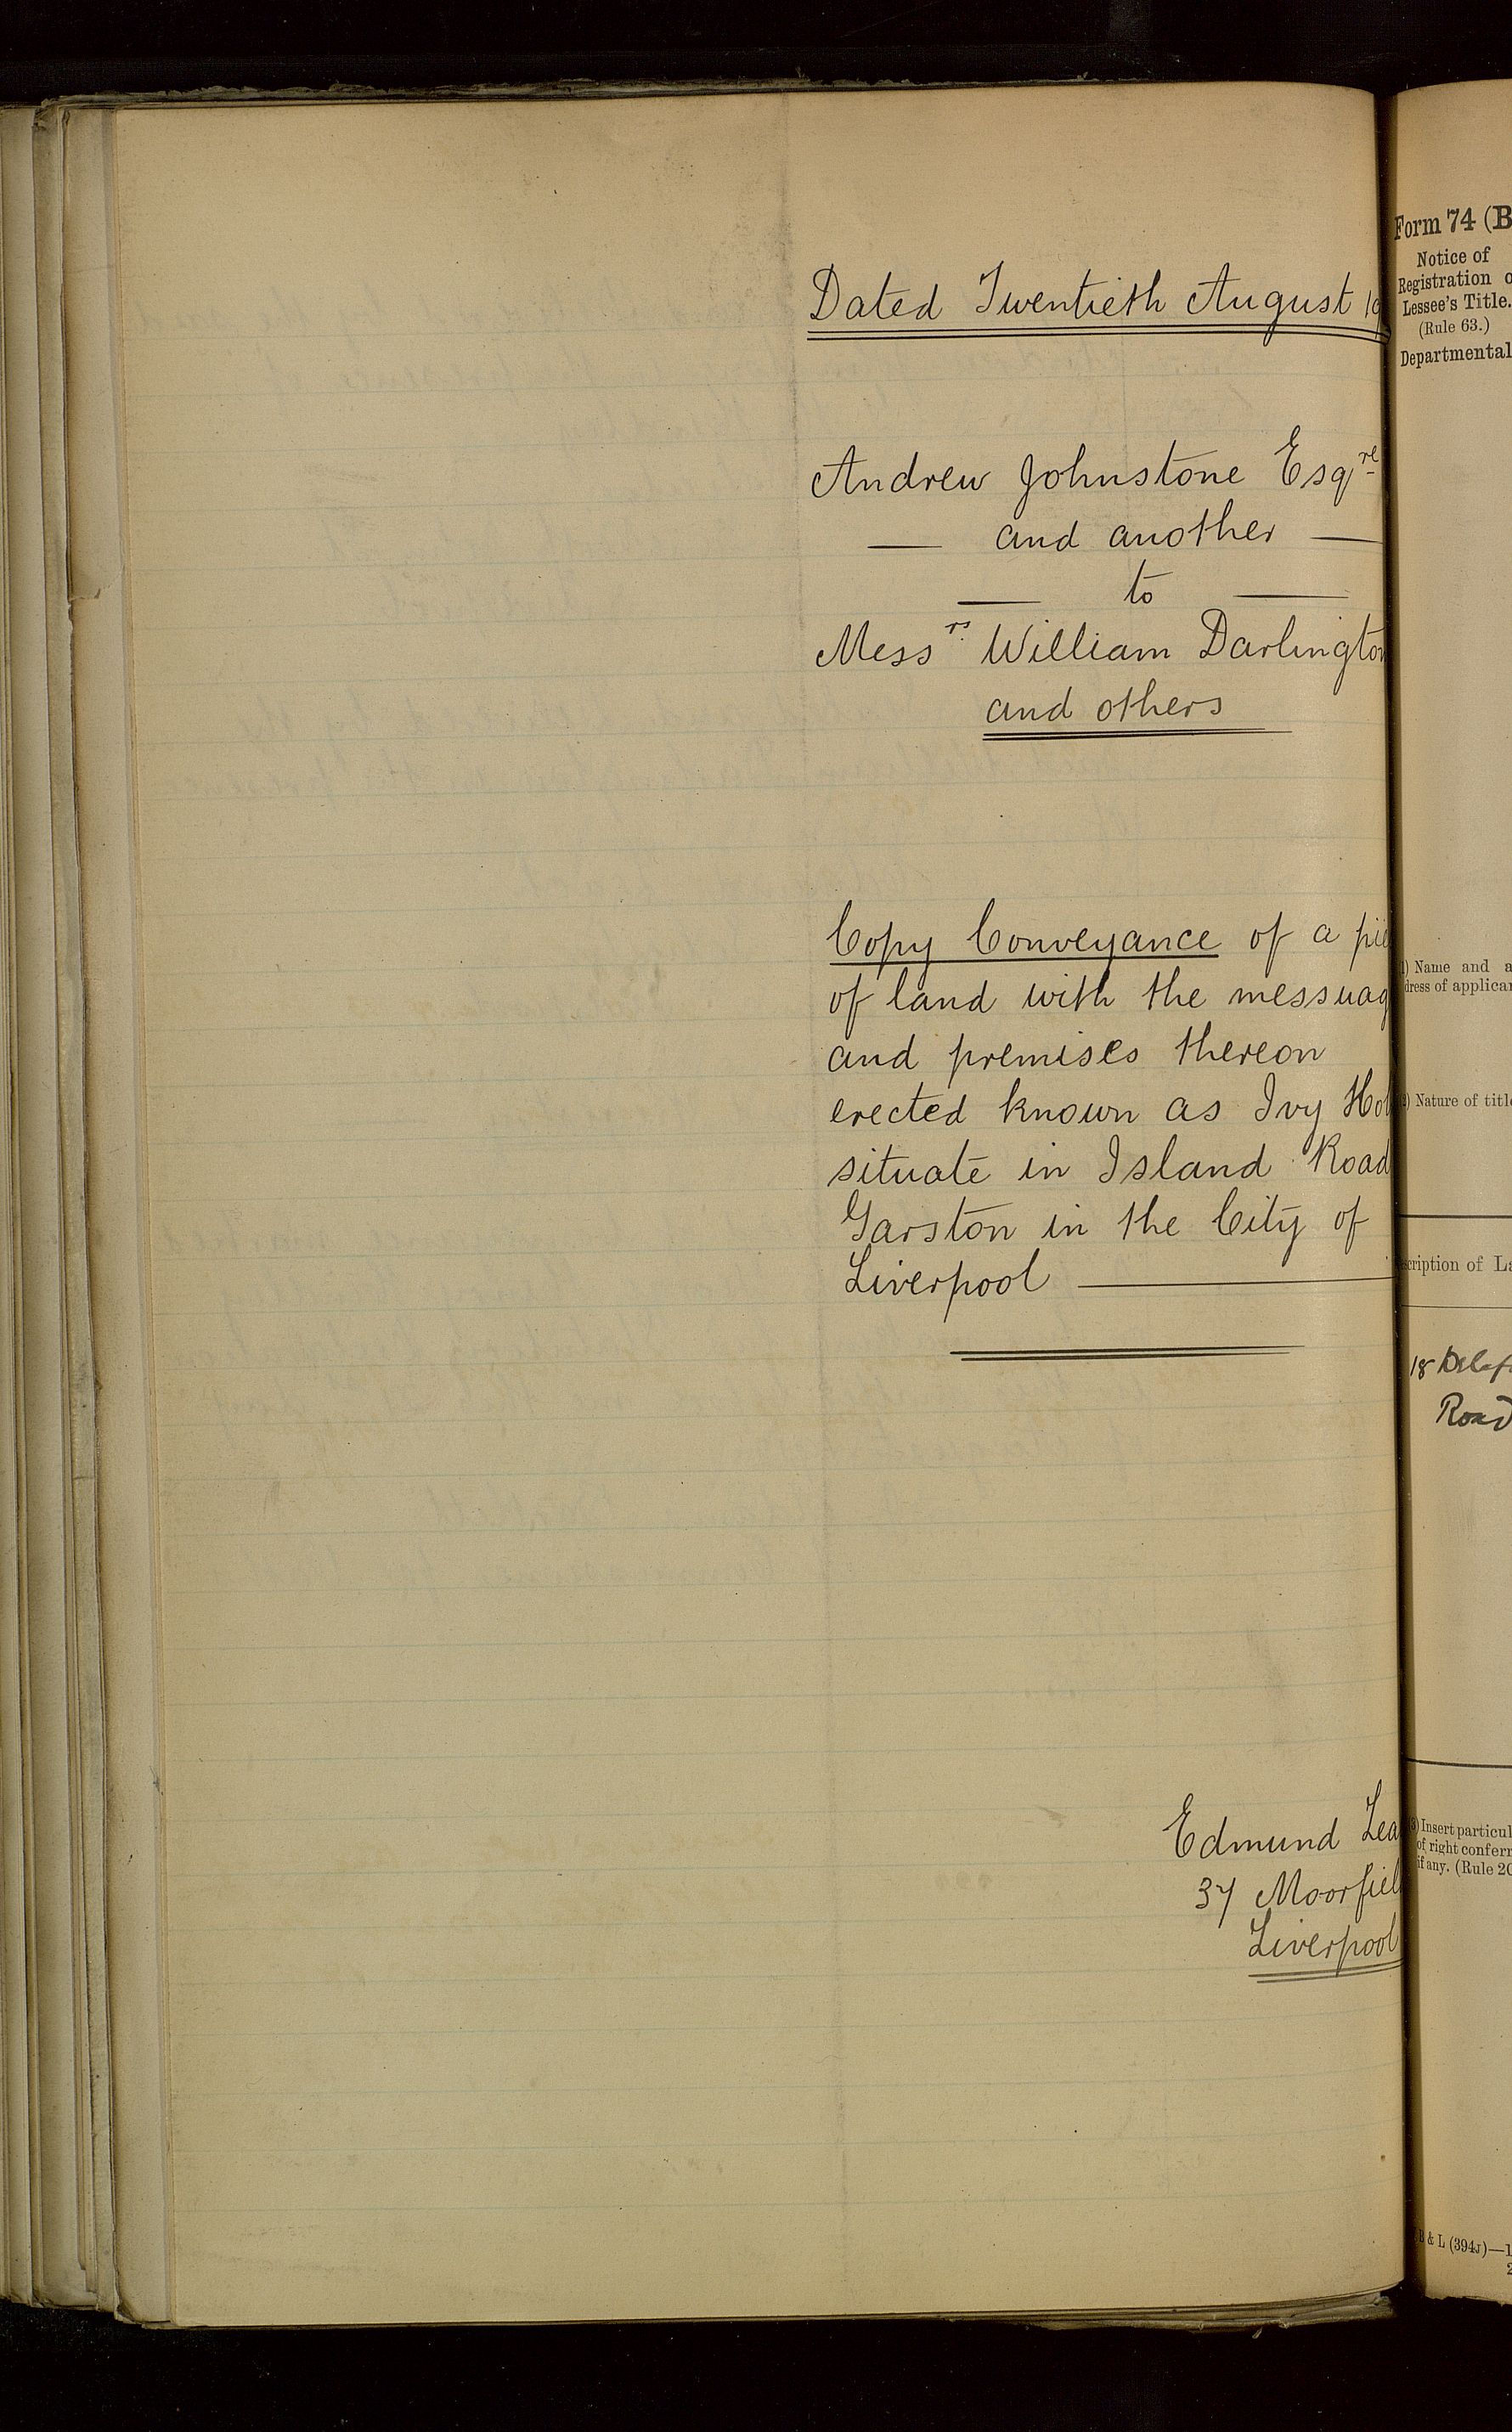 Dated Twentieth August 19
Andrew Johnstone Esqre
— and another —
— to —
Messrs. William Darlington
and others
Copy Conveyance of a pie
of land with the messuag
and premises thereon
erected known as Ivy Hol
situate in Island Road
Garston in the City of
Liverpool —
Edmund Lea
37 Moorfiel
Liverpool
Form 74 (B
Notice of
Registration o
Lessee's Title.
(Rule 63.)
Departmental
) Name and a
dress of applican
) Nature of title
scription of La
18
Road
) Insert particul
of right conferr
if any. (Rule 20
& L (394J)—1
2